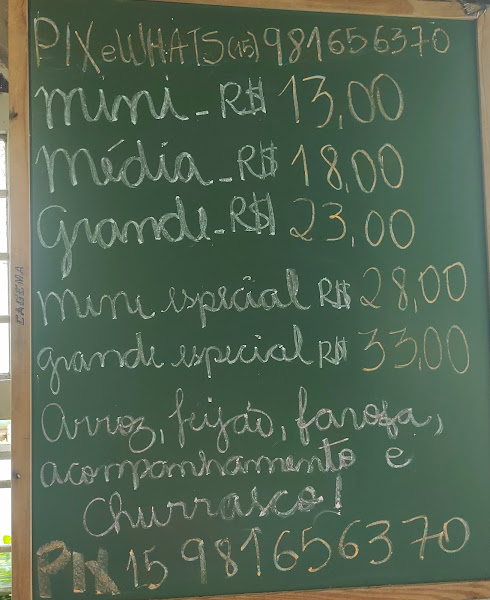 PIX e WHATS (15) 981656370
mini - R$ 13,00
média - R$ 18,00
grande - R$ 23,00
mini especial R$ 28,00
CAGEMA
grande especial R$ 33,00
Arroz, feijão, farofa,
acompanhamento e
churrasco!
PIX 15 981656370